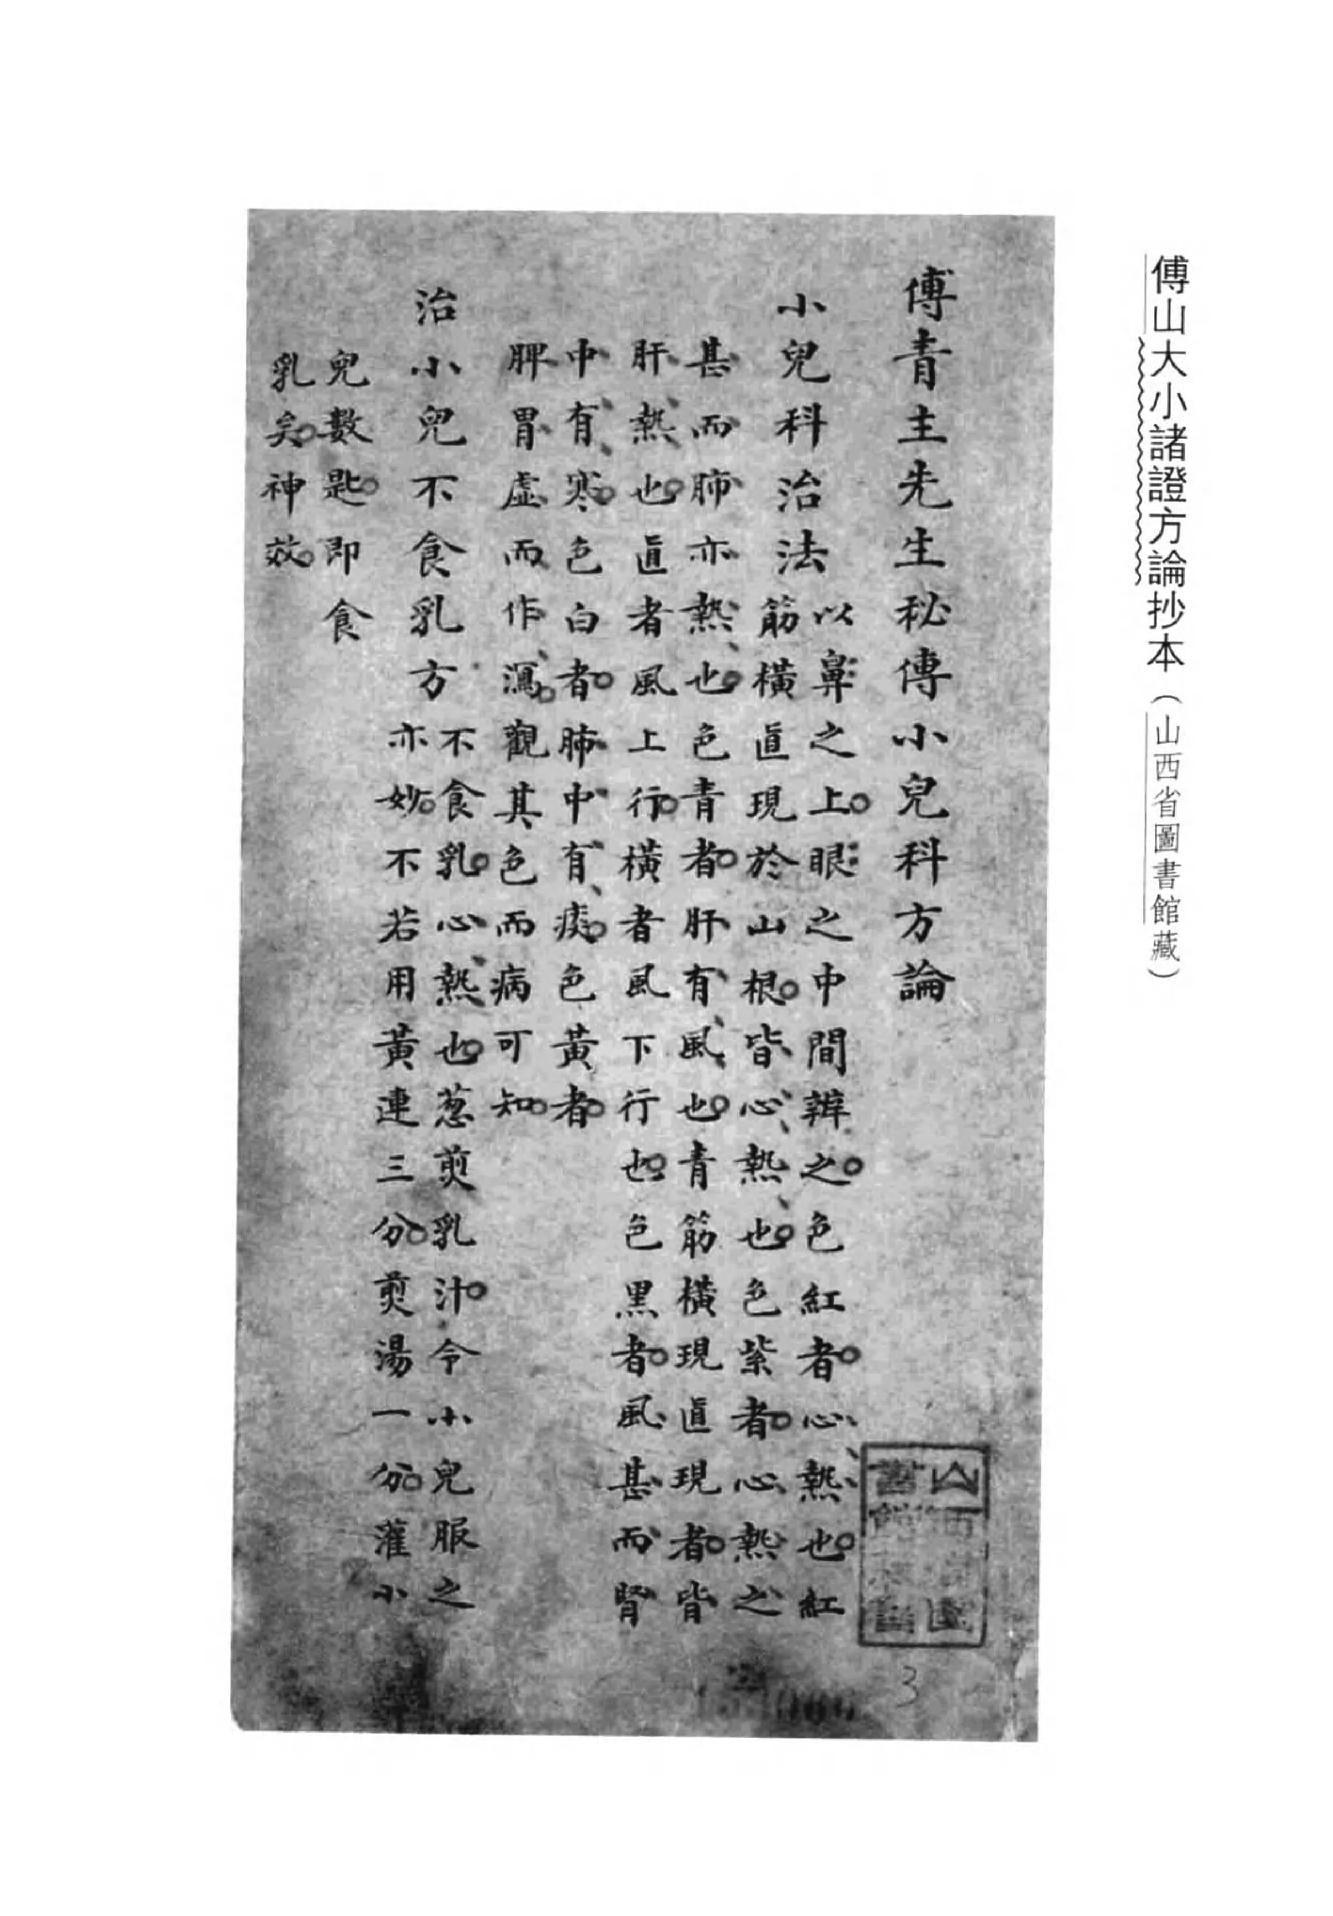 傅山大小諸證方論抄本（山西省圖書館藏）
傅青主先生秘傳小兒科方論
小兒科治法
以鼻之上眼之中間辨之色紅者心熱也紅
筋橫直現於山根皆心熱也色紫者心熱之
甚而肺亦熱也色青者肝有風也青筋橫現直現者皆
肝熱也直者風上行橫者風下行也色黑者風甚而腎
中有寒色白者肺中有痰色黃者
脾胃虛而作瀉觀其色而病可知
治小兒不食乳方
不食乳心熱也葱煎乳汁令小兒服之
亦妙不若用黃連三分煎湯一分灌小
兒數匙即食
乳矣神效
山西省圖
書館藏書
3